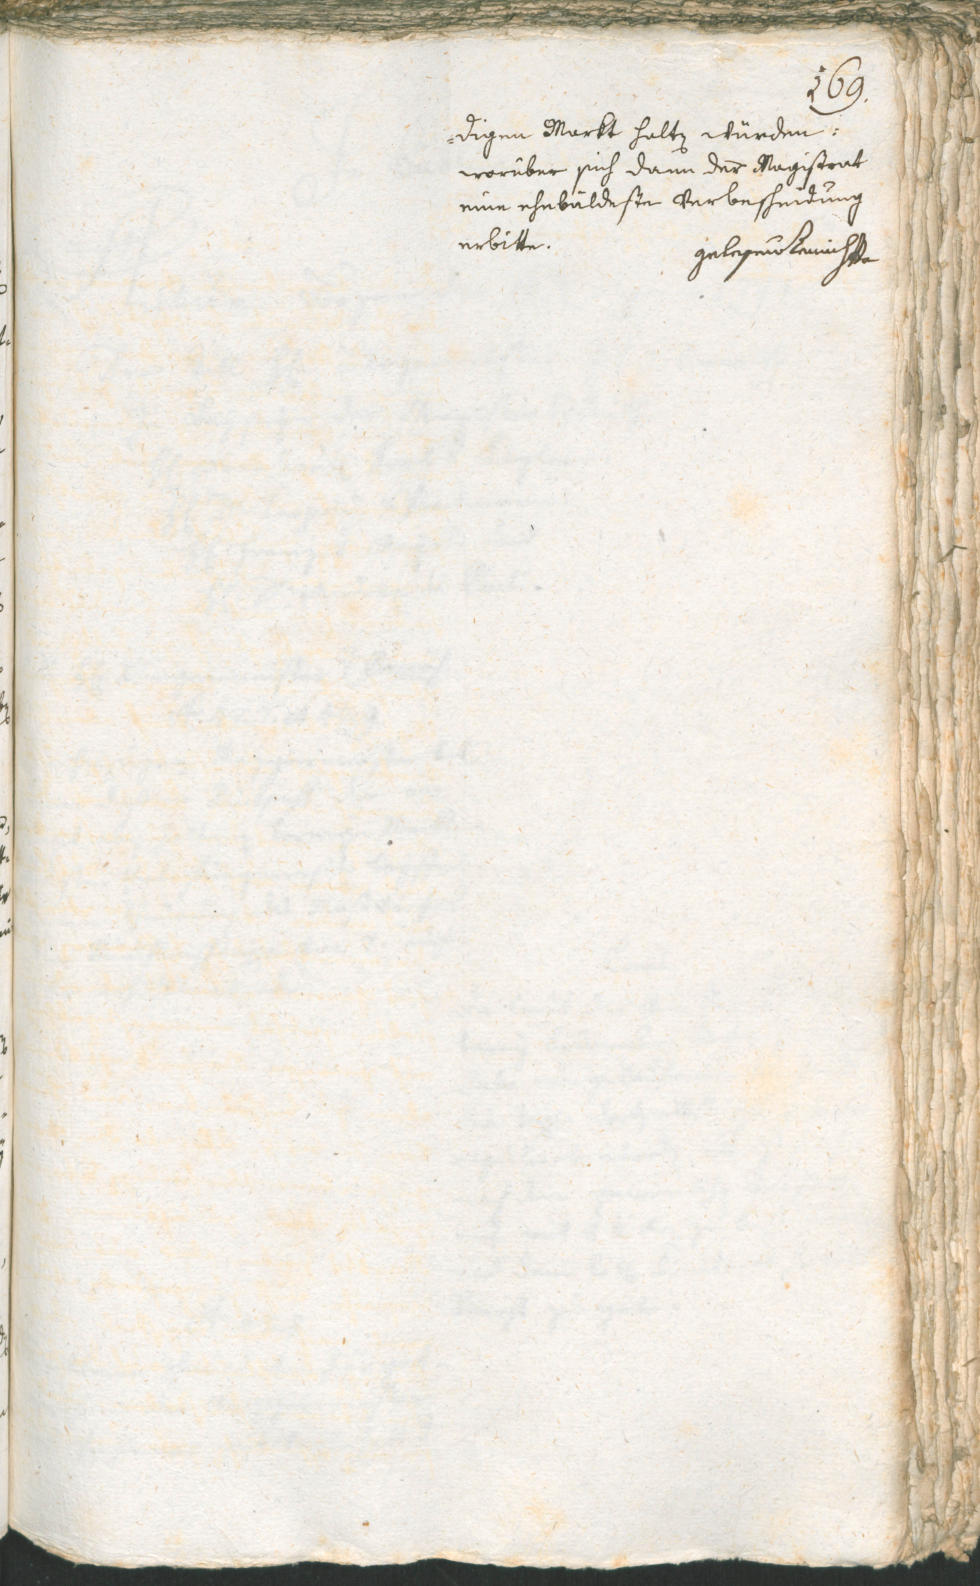 169.
=digen Markt haltꝫ würden:
worüber sich dann der Magistrat
eine ehebäldeste Verbescheidung
erbitte.